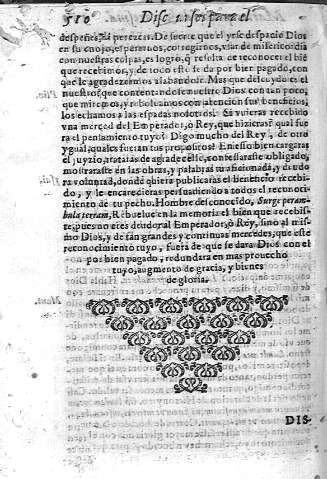 510 Disc. para el
despeñes, ni perezcas. De suerte que el yrse despacio Dios
en su enojo, esperarnos, corregirnos, vsar de misericordia
con nuestras culpas, es logro, q̃ resulta de reconocer el biẽ
que recebimos, y de todo esto se da por bien pagado, con
que le agradezcamos, y alabandole. Mas que descuydo es el
nuestro, que contentandose nuestro Dios con tan poco,
que miremos, y reboluamos con atencion sus beneficios,
los echamos a las espadas nosotros. Si vuieras recebido
vna merced del Emperador, ò Rey, que hizieras? qual fuera
el pensamiento tuyo? Digo mucho del Rey, de otro
ygual, quales fueran tus propositos? En esso bien cargaras
el juyzio, trataras de agradecelle, confessaraste obligado,
mostraraste en las obras, y palabras tu aficionada, y deuda
voluntad, donde quiera publicaras el beneficio recebido,
y le encarecieras persuadiendo a todos el reconocimiento
de tu pecho. Hombre desconocido, Surge perambula
terram, Rebuelue en la memoria el bien que recebiste,
pues no eres deudor al Emperador, ò Rey, sino al mismo
Dios, y de tan grandes y continuas mercedes, que este
reconocimiento tuyo, fuera de que se dara Dios con el
por bien pagado, redundara en mas prouecho
tuyo, augmento de gracia, y bienes
de gloria.
DIS-